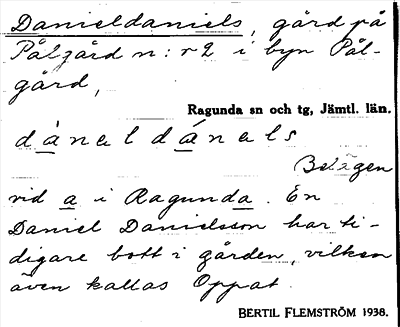 Danieldaniels, gård på
Pålgård n:r 2 i byn Pål-
gård,
Ragunda sn och tg, Jämtl. län.
dánaldánals
Belägen
vid a i Ragunda. En
Daniel Danielsson har ti-
digare bott i gården, vilken
även kallas Oppat.
BERTIL FLEMSTRÖM 1938.